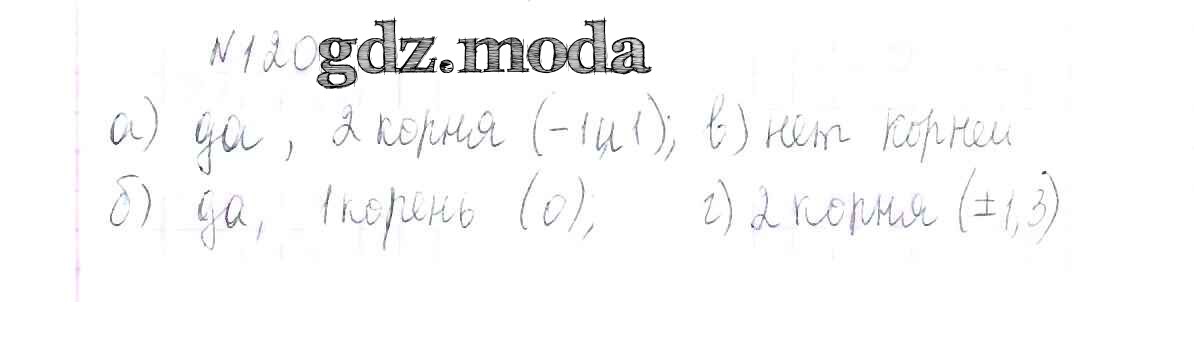 N120 gdz.moda
а) да, 2 корня (-1 и 1); в) нет корней
б) да, 1 корень (0); г) 2 корня (±1,3)